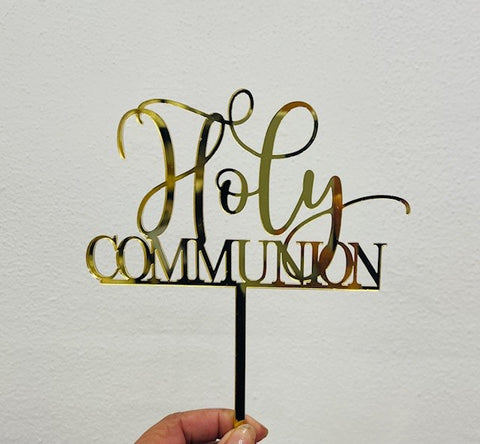 Holy
COMMUNION